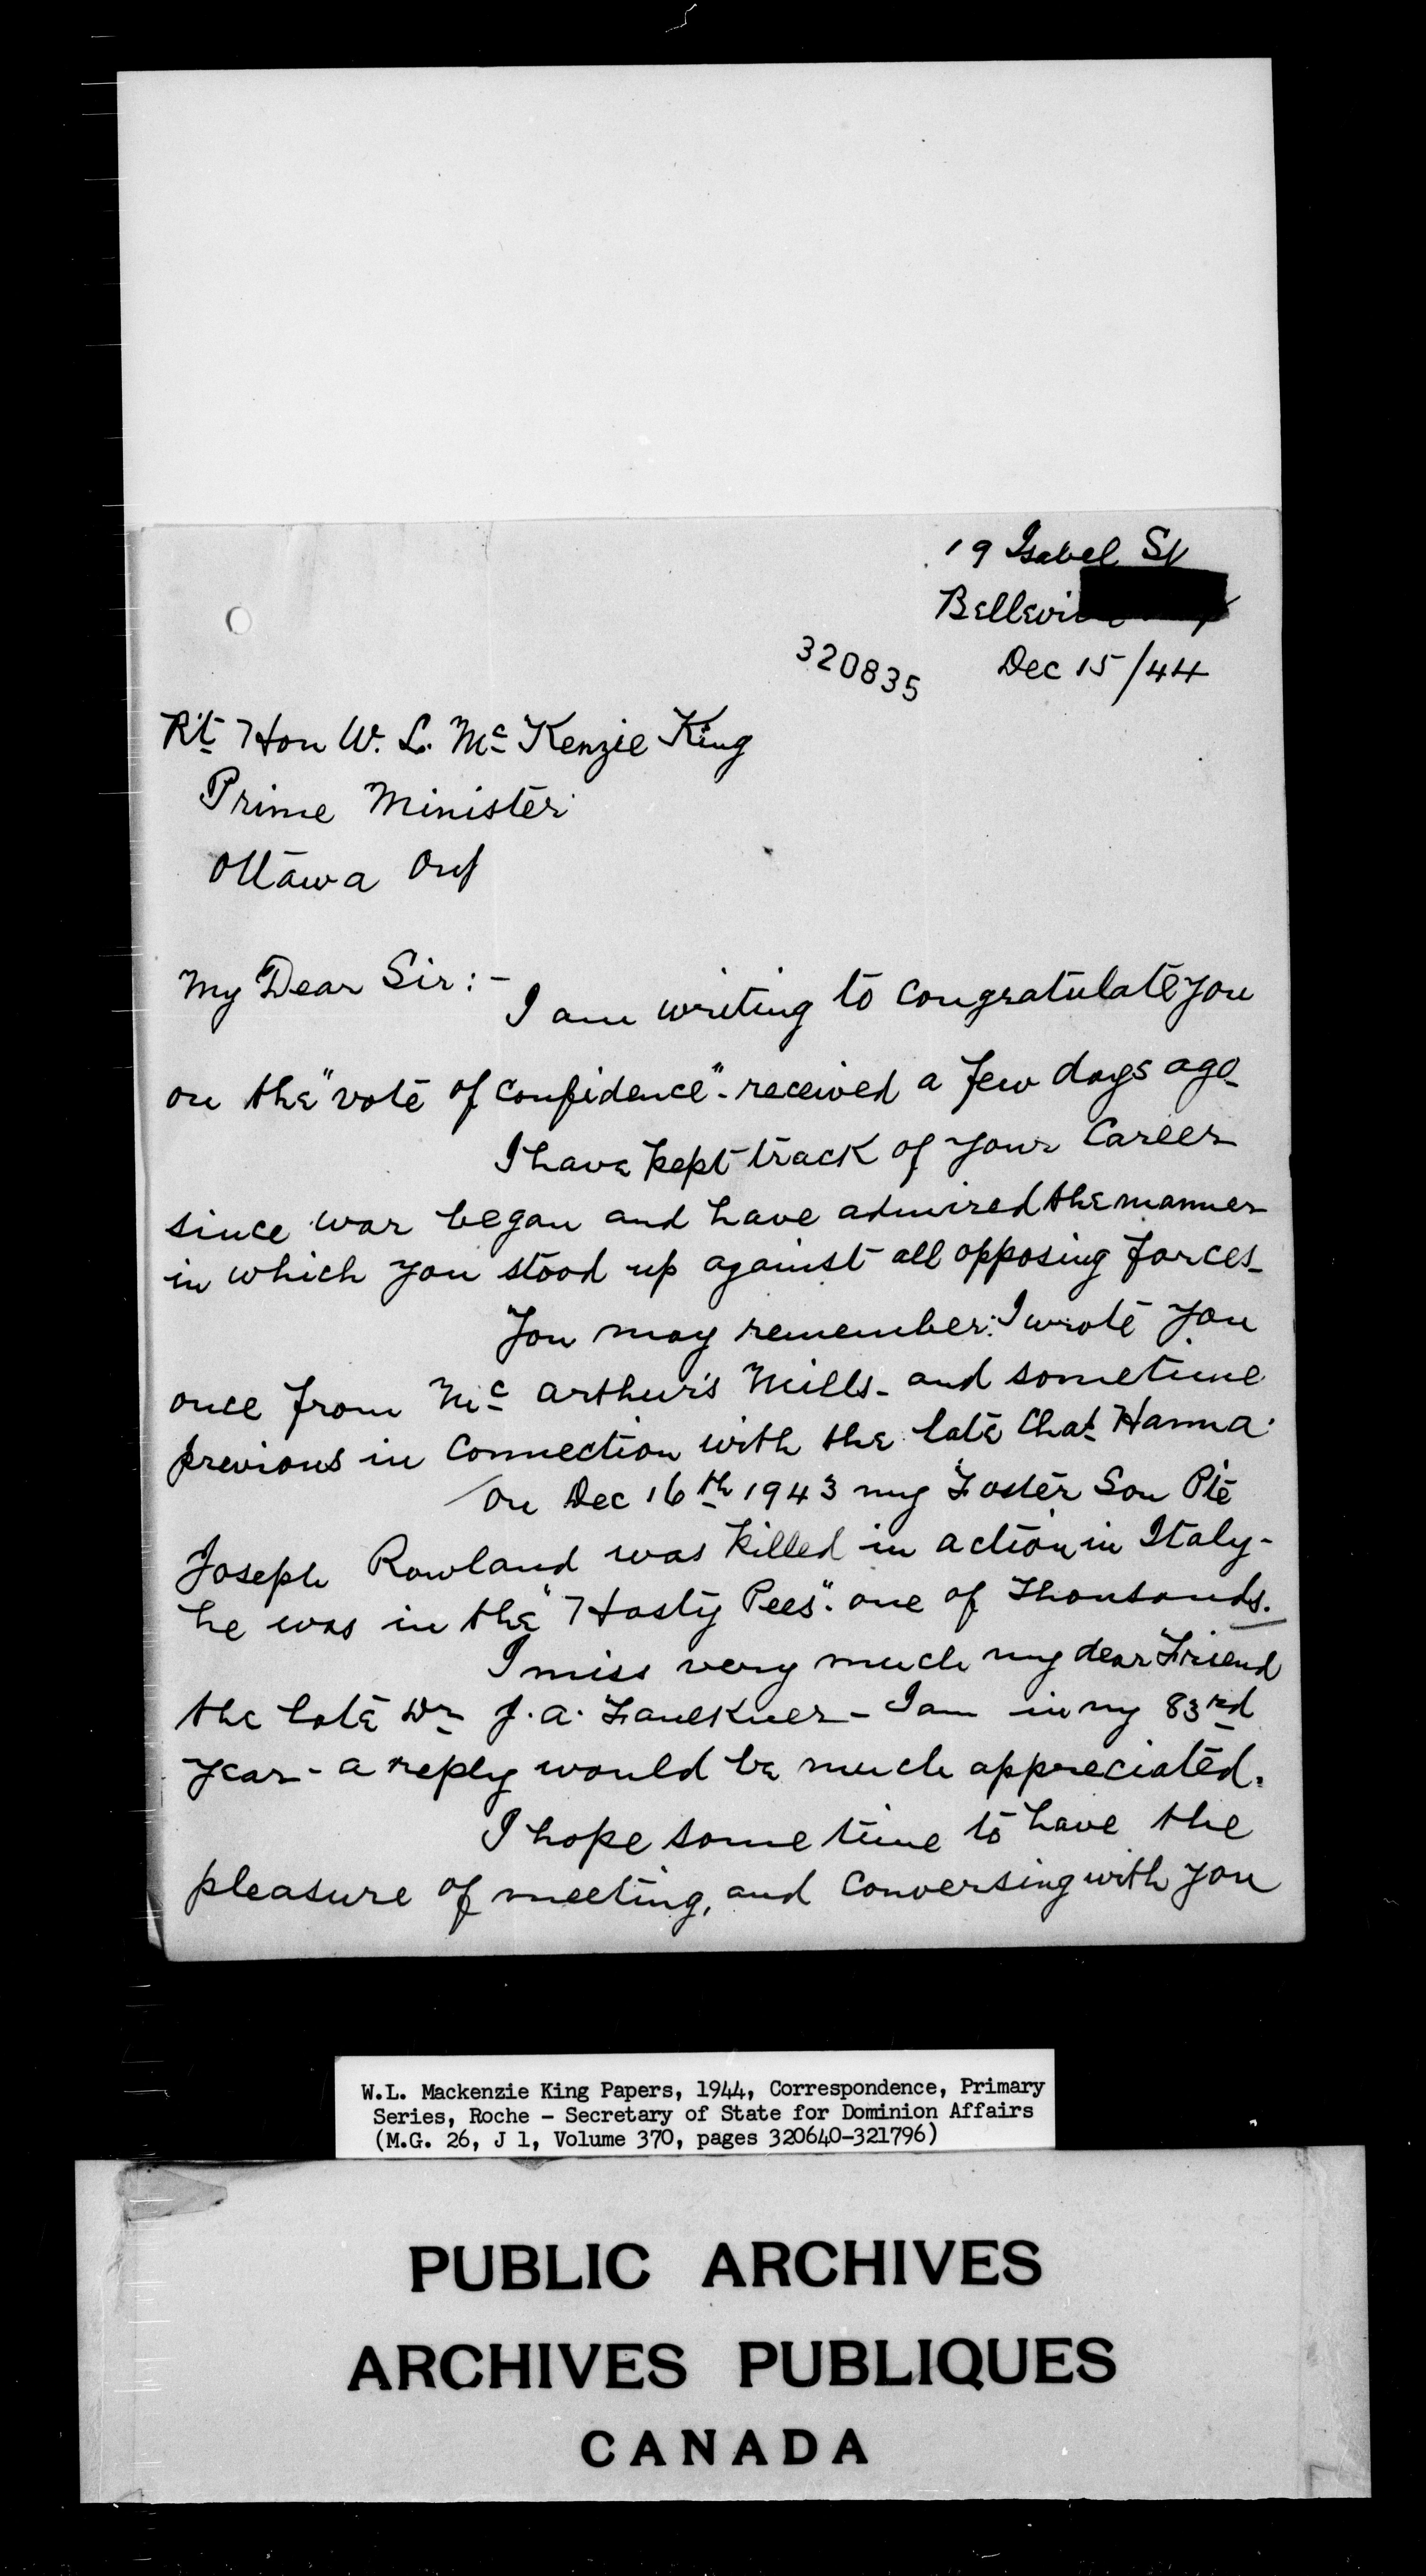 19 Isabel St
Bellevi
Dec 15/44
320835
Rt Hon W. L. Mc Kenzie King
Prime Minister
Ottawa Ont
My Dear Sir:-
I am writing to congratulate you
on the "vote of confidence"- received a few days ago-
I have kept track of your career
since war began and have admired the manner
in which you stood up against all opposing forces-
You may remember: I wrote you
once from Mc Arthur's Mills- and sometime
previous in connection with the late Chas Hanna.
On Dec 16th 1943 my Foster Son Pte
Joseph Rowland was killed in action in Italy-
he was in the "Hasty Pees". one of Thousands.
I miss very much my dear Friend
the late Dr J. A. Faulkner- I am in my 83rd
year- a reply would be much appreciated.
I hope some time to have the
pleasure of meeting, and conversing with you
W.L. Mackenzie King Papers, 1944, Correspondence, Primary
Series, Roche - Secretary of State for Dominion Affairs
(M.G. 26, J 1, Volume 370, pages 320640-321796)
PUBLIC ARCHIVES
ARCHIVES PUBLIQUES
CANADA